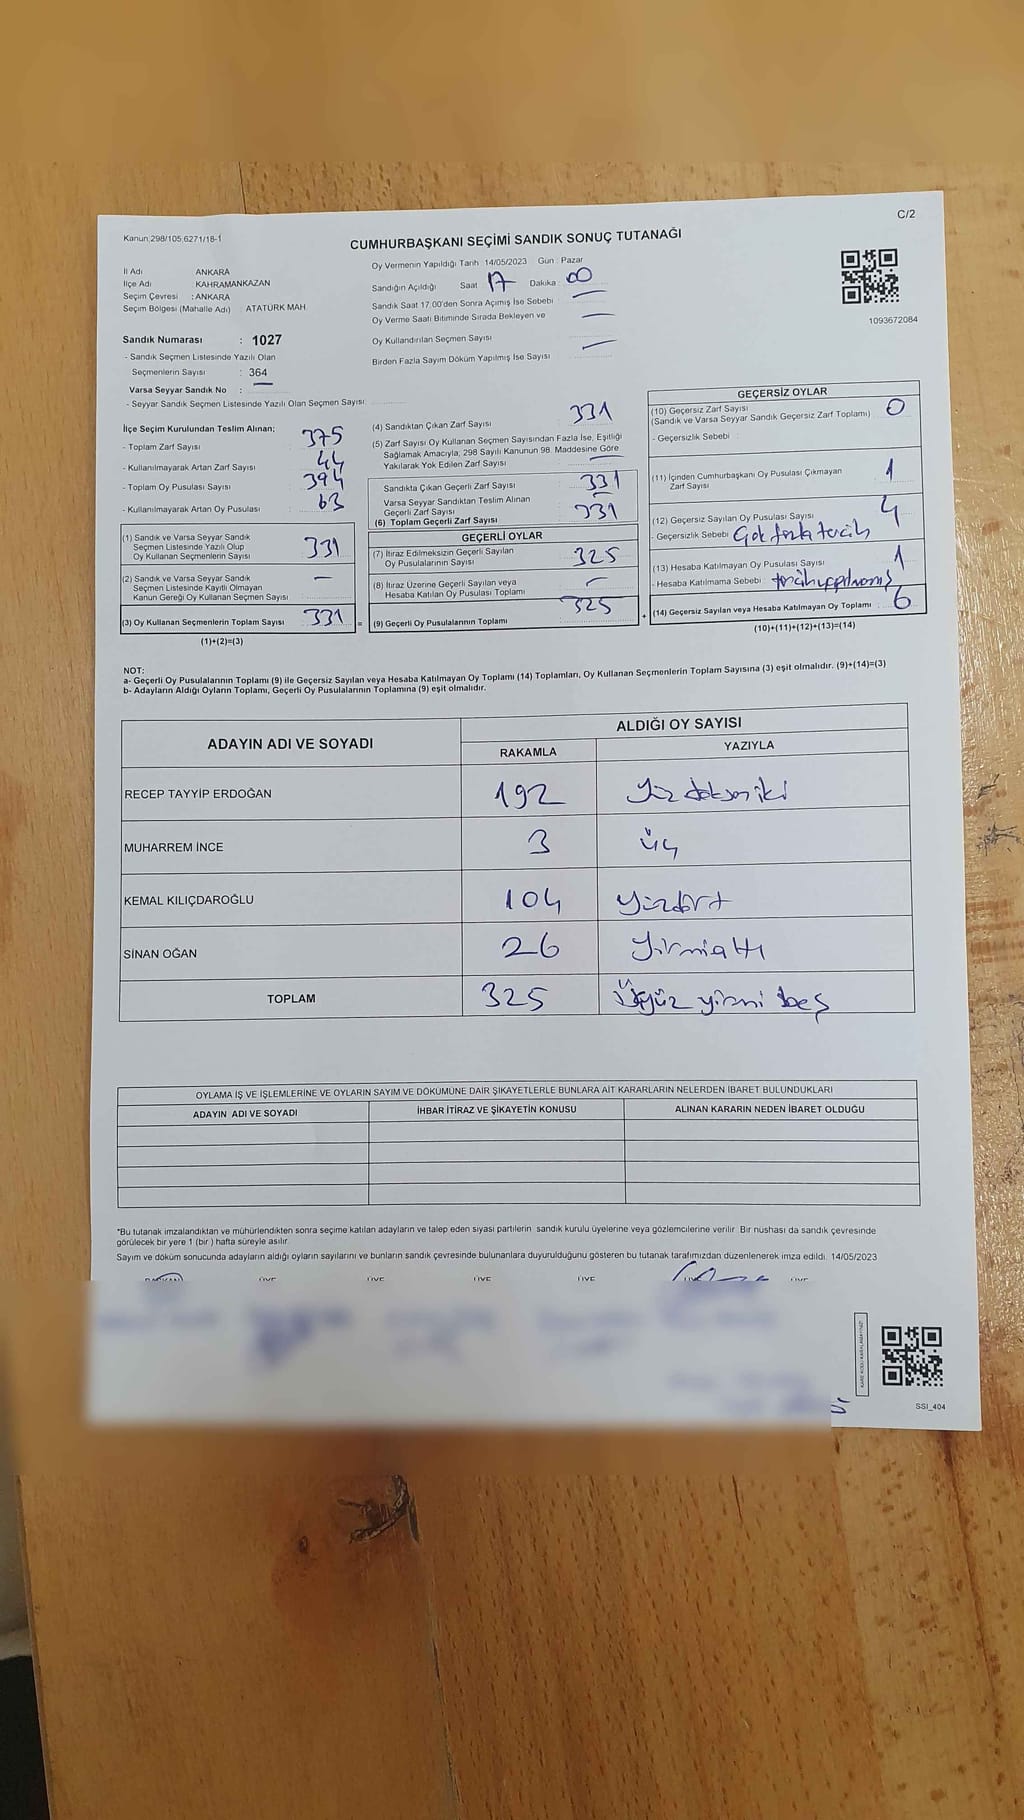 C/2
Kanun;298/105;6271/18-1
CUMHURBAŞKANI SEÇİMİ SANDIK SONUÇ TUTANAĞI
İl Adı ANKARA
İlçe Adı KAHRAMANKAZAN
Seçim Çevresi : ANKARA
Seçim Bölgesi (Mahalle Adı) : ATATÜRK MAH.
Oy Vermenin Yapıldığı Tarih 14/05/2023 Gün : Pazar
Sandığın Açıldığı Saat 17 Dakika 00
Sandık Saat 17.00'den Sonra Açımış İse Sebebi —
Oy Verme Saati Bitiminde Sırada Bekleyen ve
Oy Kullandırılan Seçmen Sayısı —
Birden Fazla Sayım Döküm Yapılmış İse Sayısı —
1093672084
Sandık Numarası : 1027
- Sandık Seçmen Listesinde Yazılı Olan
Seçmenlerin Sayısı : 364
Varsa Seyyar Sandık No : —
- Seyyar Sandık Seçmen Listesinde Yazılı Olan Seçmen Sayısı:
İlçe Seçim Kurulundan Teslim Alınan;
- Toplam Zarf Sayısı 375
- Kullanılmayarak Artan Zarf Sayısı 44
- Toplam Oy Pusulası Sayısı 394
- Kullanılmayarak Artan Oy Pusulası 63
(1) Sandık ve Varsa Seyyar Sandık
Seçmen Listesinde Yazılı Olup
Oy Kullanan Seçmenlerin Sayısı 331
(2) Sandık ve Varsa Seyyar Sandık
Seçmen Listesinde Kayıtlı Olmayan
Kanun Gereği Oy Kullanan Seçmen Sayısı —
(3) Oy Kullanan Seçmenlerin Toplam Sayısı 331 =
(1)+(2)=(3)
(4) Sandıktan Çıkan Zarf Sayısı 331
(5) Zarf Sayısı Oy Kullanan Seçmen Sayısından Fazla İse, Eşitliği
Sağlamak Amacıyla, 298 Sayılı Kanunun 98. Maddesine Göre
Yakılarak Yok Edilen Zarf Sayısı —
Sandıkta Çıkan Geçerli Zarf Sayısı 331
Varsa Seyyar Sandıktan Teslim Alınan
Geçerli Zarf Sayısı —
(6) Toplam Geçerli Zarf Sayısı 331
GEÇERLİ OYLAR
(7) İtiraz Edilmeksizin Geçerli Sayılan
Oy Pusulalarının Sayısı 325
(8) İtiraz Üzerine Geçerli Sayılan veya
Hesaba Katılan Oy Pusulası Toplamı —
(9) Geçerli Oy Pusulalarının Toplamı 325 +
GEÇERSİZ OYLAR
(10) Geçersiz Zarf Sayısı
(Sandık ve Varsa Seyyar Sandık Geçersiz Zarf Toplamı) 0
- Geçersizlik Sebebi :
(11) İçinden Cumhurbaşkanı Oy Pusulası Çıkmayan
Zarf Sayısı 1
(12) Geçersiz Sayılan Oy Pusulası Sayısı 4
- Geçersizlik Sebebi Çok fazla tercih
(13) Hesaba Katılmayan Oy Pusulası Sayısı 1
- Hesaba Katılmama Sebebi : tercih yapılmamış
(14) Geçersiz Sayılan veya Hesaba Katılmayan Oy Toplamı 6
(10)+(11)+(12)+(13)=(14)
NOT:
a- Geçerli Oy Pusulalarının Toplamı (9) ile Geçersiz Sayılan veya Hesaba Katılmayan Oy Toplamı (14) Toplamları, Oy Kullanan Seçmenlerin Toplam Sayısına (3) eşit olmalıdır. (9)+(14)=(3)
b- Adayların Aldığı Oyların Toplamı, Geçerli Oy Pusulalarının Toplamına (9) eşit olmalıdır.
ADAYIN ADI VE SOYADI ALDIĞI OY SAYISI
RAKAMLA YAZIYLA
RECEP TAYYİP ERDOĞAN 192 Yüz doksan iki
MUHARREM İNCE 3 üç
KEMAL KILIÇDAROĞLU 104 Yüzdört
SİNAN OĞAN 26 Yirmialtı
TOPLAM 325 Üçyüz yirmi beş
OYLAMA İŞ VE İŞLEMLERİNE VE OYLARIN SAYIM VE DÖKÜMÜNE DAİR ŞİKAYETLERLE BUNLARA AİT KARARLARIN NELERDEN İBARET BULUNDUKLARI
ADAYIN ADI VE SOYADI İHBAR İTİRAZ VE ŞİKAYETİN KONUSU ALINAN KARARIN NEDEN İBARET OLDUĞU
*Bu tutanak imzalandıktan ve mühürlendikten sonra seçime katılan adayların ve talep eden siyasi partilerin sandık kurulu üyelerine veya gözlemcilerine verilir. Bir nüshası da sandık çevresinde
görülecek bir yere 1 (bir ) hafta süreyle asılır.
Sayım ve döküm sonucunda adayların aldığı oyların sayılarını ve bunların sandık çevresinde bulunanlara duyurulduğunu gösteren bu tutanak tarafımızdan düzenlenerek imza edildi. 14/05/2023
BAŞKAN ÜYE ÜYE ÜYE ÜYE ÜYE ÜYE
SSI_404